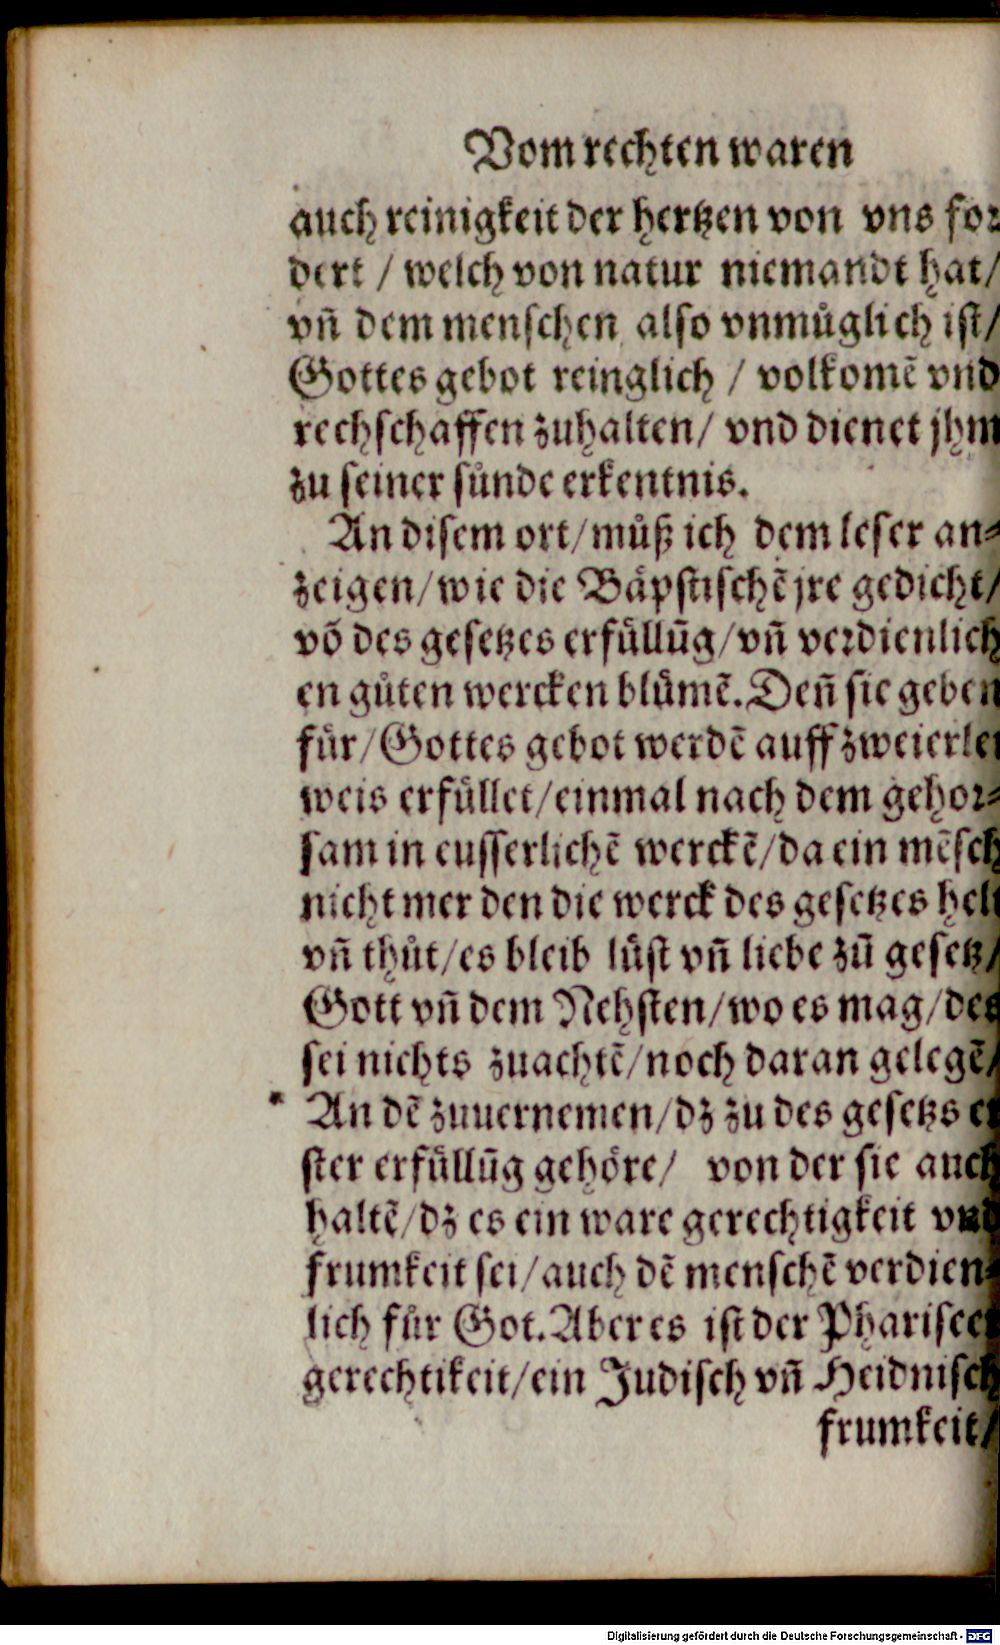 Vom rechten waren
auch reinigkeit der hertzen von vns for⸗
dert / welch von natur niemandt hat/
vñ dem menschen also vnmuͤglich ist/
Gottes gebot reinglich / volkomẽ vnd
rechschaffen zuhalten/ vnd dienet jhm
zu seiner suͤnde erkentnis.
An disem ort/muͦß ich dem leser an⸗
zeigen/wie die Baͤpstischẽ jre gedicht/
võ des gesetzes erfuͤllũg/vñ verdienlich
en guͦten wercken bluͤmẽ. Deñ sie geben
fuͤr/Gottes gebot werdẽ auff zweierlei
weis erfuͤllet/einmal nach dem gehor⸗
sam in eusserlichẽ werckẽ/da ein mẽsch
nicht mer den die werck des gesetzes helt
vñ thuͦt/es bleib luͦst vñ liebe zũ gesetz/
Gott vñ dem Nehsten/wo es mag/des
sei nichts zuachtẽ/noch daran gelegẽ/
An dẽ zuuernemen/dz zu des gesetzs er
ster erfuͤllũg gehoͤre/ von der sie auch
haltẽ/dz es ein ware gerechtigkeit vnd
frumkeit sei/auch dẽ menschẽ verdien⸗
lich fuͤr Got. Aber es ist der Phariseer
gerechtikeit/ein Judisch vñ Heidnisch
frumkeit/
Digitalisierung gefördert durch die Deutsche Forschungsgemeinschaft - DFG